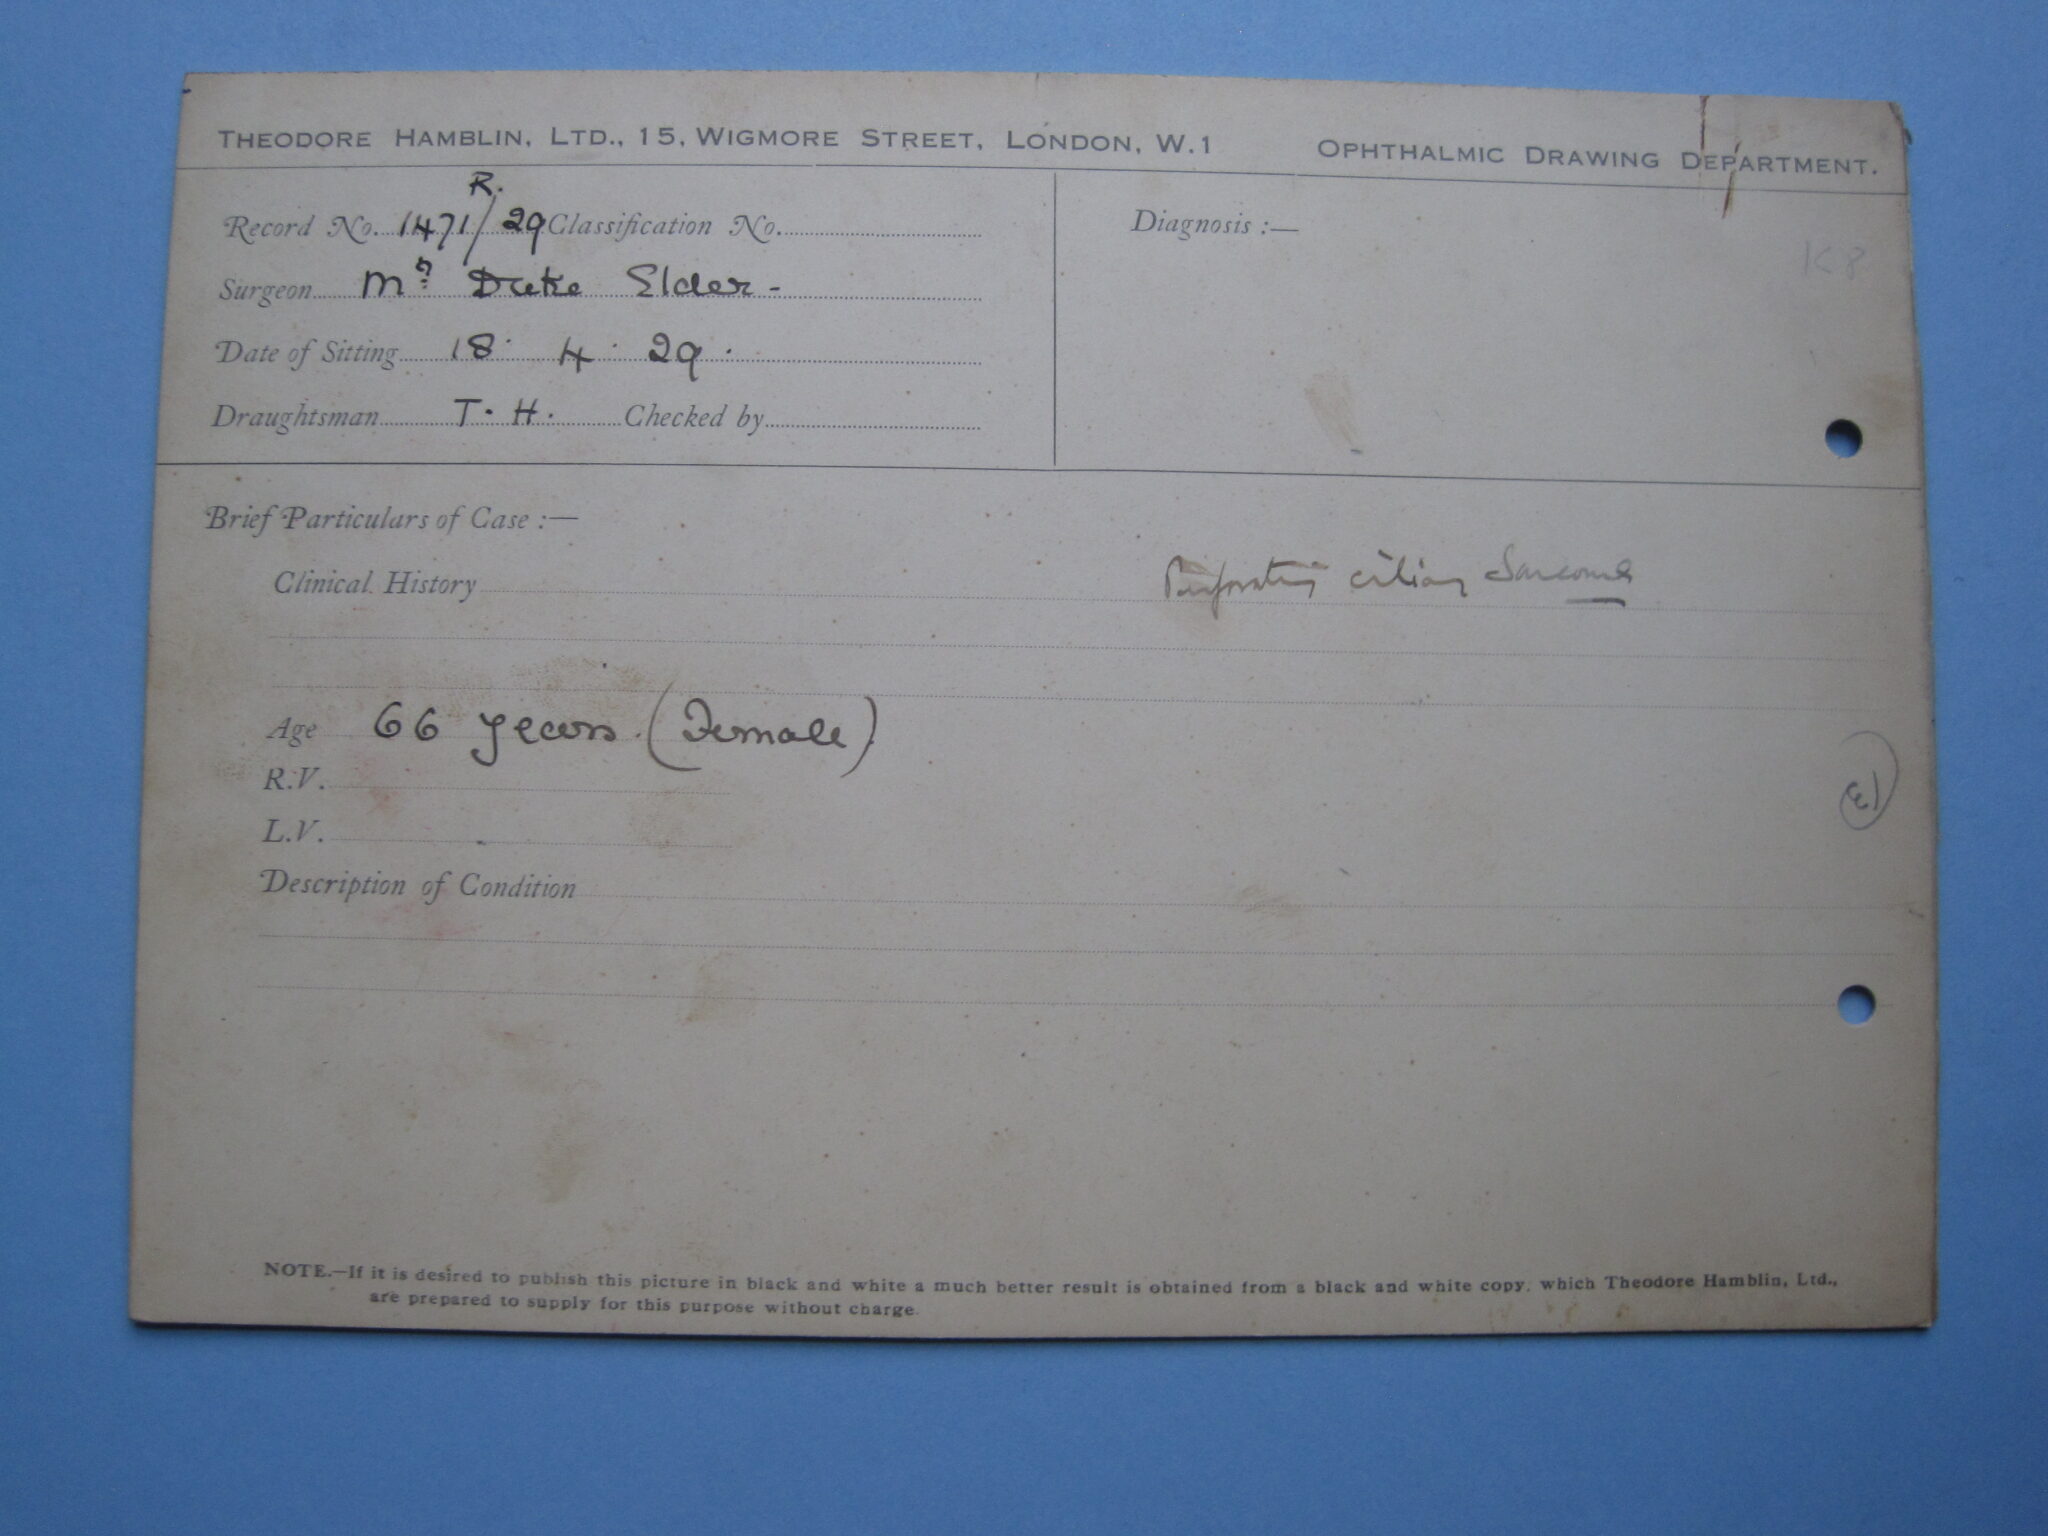 THEODORE HAMBLIN, LTD., 15, WIGMORE STREET, LONDON, W.1 OPHTHALMIC DRAWING DEPARTMENT.
R.
Record No. 1471/29 Classification No.
Surgeon Mr Duke Elder -
Date of Sitting 18. 4. 29.
Draughtsman T. H. Checked by
Diagnosis :—
K8
Brief Particulars of Case :—
Clinical History Perforating ciliary Sarcoma
Age 66 years. (Female)
R.V.
L.V.
Description of Condition
NOTE.—If it is desired to publish this picture in black and white a much better result is obtained from a black and white copy, which Theodore Hamblin, Ltd.,
are prepared to supply for this purpose without charge.